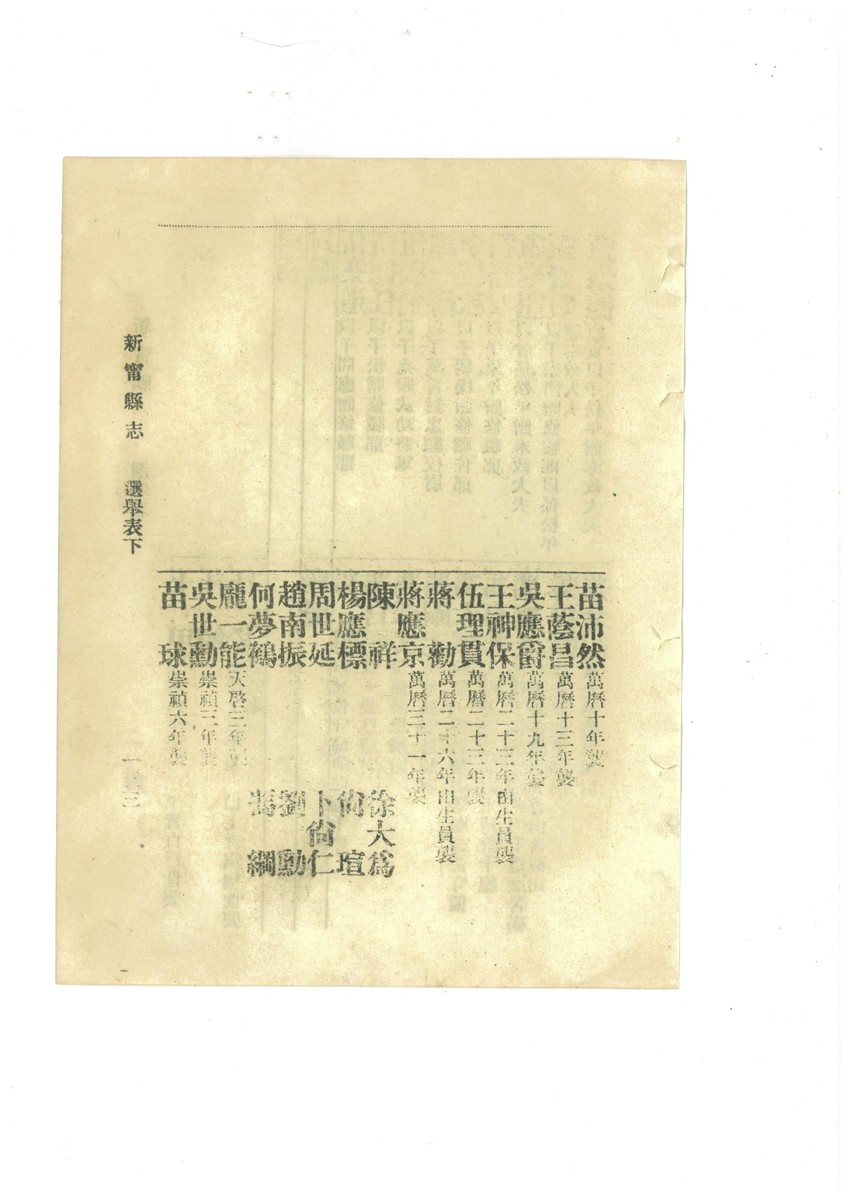 苗沛然 萬曆十年襲
王蔭昌 萬曆十三年襲
吳應爵 萬曆十九年襲
王神保 萬曆二十三年由生員襲
伍理貫 萬曆二十三年襲
蔣勸 萬曆二十六年由生員襲
蔣應京 萬曆三十一年襲
陳祥 徐大爲
楊應標 尙瑄
周世延 卜尙仁
趙南振 劉勳
何夢鶴 馮綱
龐一能 天啓三年襲
吳世勳 崇禎三年襲
苗球 崇禎六年襲
新甯縣志 選舉表下